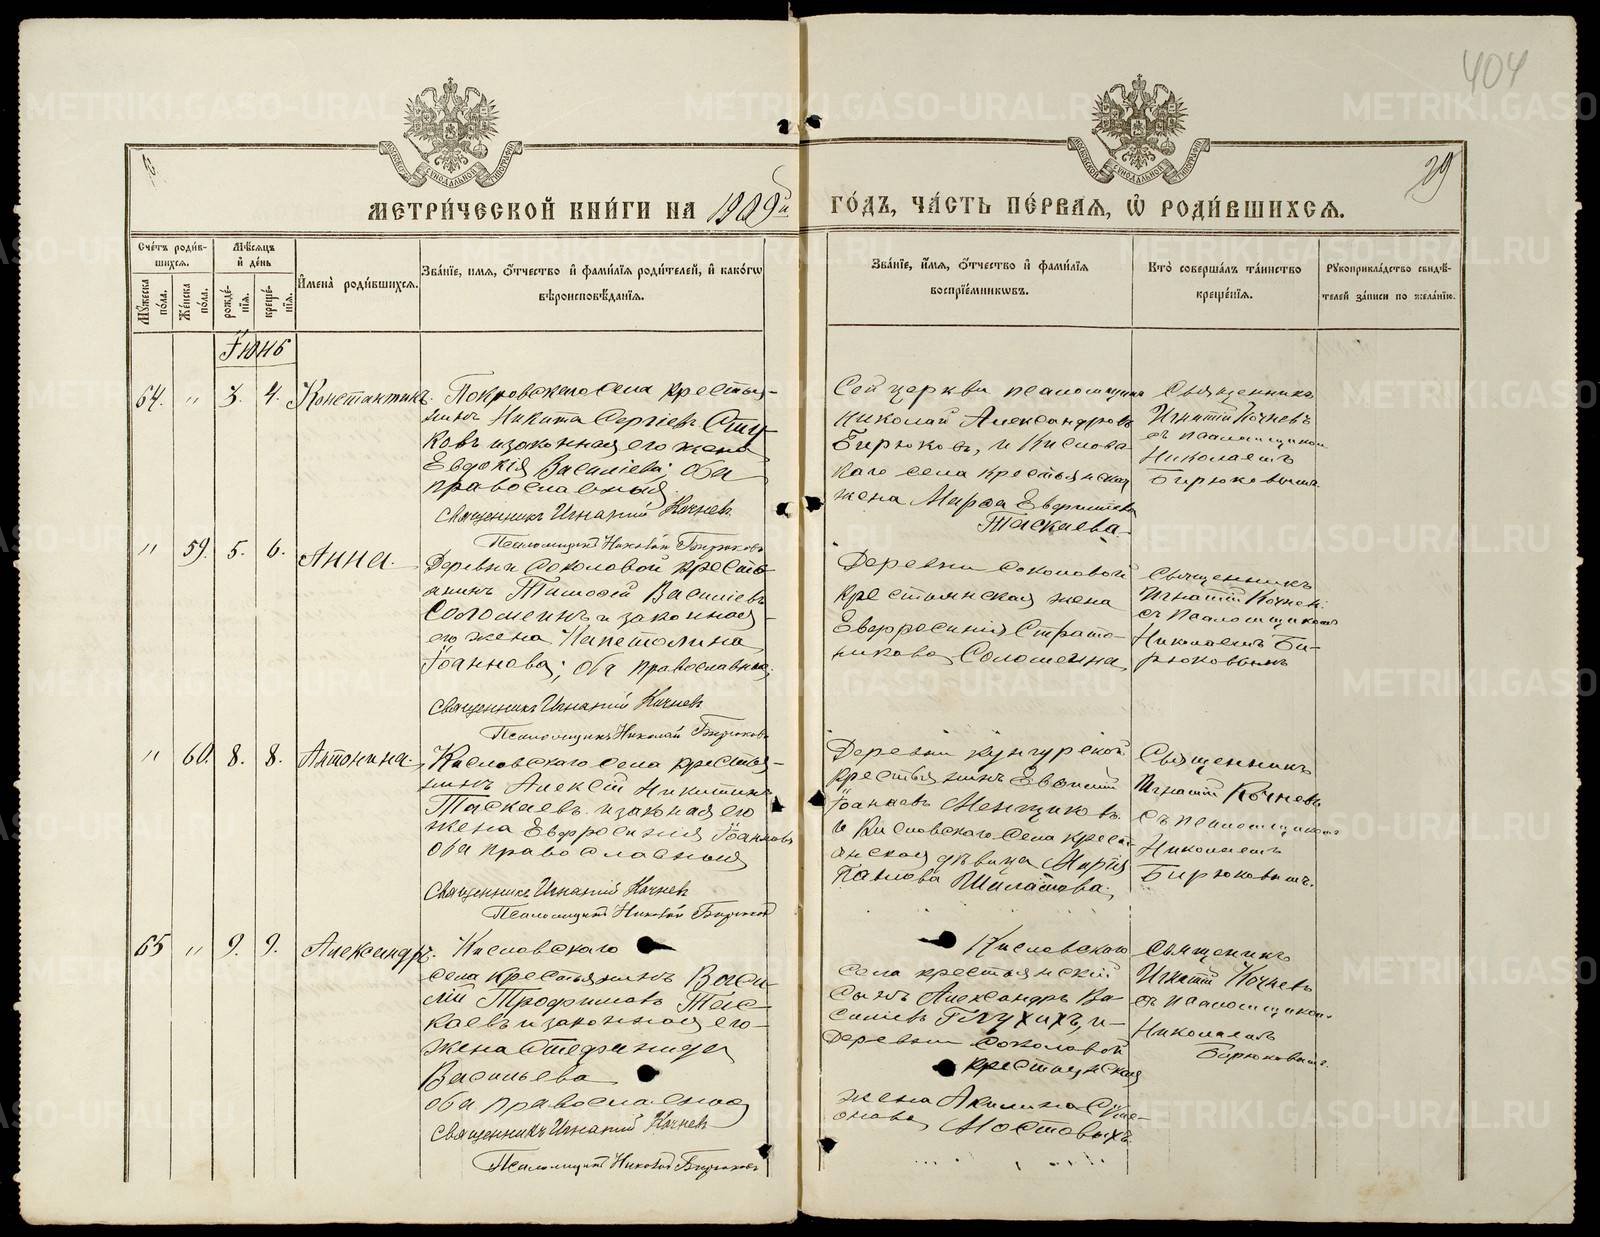 404
29
МЕТРИ́ЧЕСКОЙ КНИ́ГИ НА 1909й ГО́ДЪ, ЧА́СТЬ ПЕ́РВАЯ, Ѽ РОДИ́ВШИХСЯ.
Сче́тъ роди́в-
шихся.
Мꙋ́жеска по́ла.
Же́нска по́ла.
Мѣ́сяцъ
и҆ де́нь
рожде́-
нїѧ.
креще́-
нїѧ.
И҆мена̀ роди́вшихся.
Зва́нїе, имя, ѻ҆́тчество и҆ фами́лїѧ роди́телей, и҆ како́гѡ
вѣроисповѣ́данїѧ.
Зва́нїе, и҆́мя, ѻ҆́тчество и҆ фами́лїѧ
воспрїе́мникѡвъ.
Кто̀ соверша́лъ та́инство
креще́нїѧ.
Рꙋкоприкла́дство свидѣ́-
телей за́писи по жела́нїю.
Іюнь
64. " 3. 4. Константинъ.
Покровскаго села крестья-
нинъ Никита Сергіевъ
ковъ и законная его жена
Евдокія Василіева; оба
православныя
Священникъ Игнатій Кочнев
Псаломщикъ Николай Бирюковъ
Сей церкви псаломщикъ
Николай Александровъ
Бирюковъ, и Кислов
каго села крестьянская
жена Марѳа
Таскаева.
Священникъ
Игнатій Кочневъ
съ псаломщикомъ
Николаемъ
Бирюковымъ.
" 59. 5. 6. Анна.
Деревни Соколовой кресть
янинъ Тимоѳей Василіевъ
Соломеинъ и законная
его жена Капетолина
Іоаннова; оба православныя;
Священникъ Игнатій Кочнев
Псаломщикъ Николай Бирюковъ
Деревни Соколовой
крестьянская жена
Евфросинія Страто-
никова Соломеина
Священникъ
Игнатій Кочнев
съ псаломщикомъ
Николаемъ Би-
рюковымъ
" 60. 8. 8. Антонина.
Кисловскаго села крестья-
нинъ Алексій Никитинъ
Таскаевъ и законная его
жена Евфросинія Іоаннова
оба православныя
Священникъ Игнатій Кочнев
Псаломщикъ Николай Бирюков
Деревни Кунгурской
крестьянинъ Евѳимій
Іоанновъ Менщиковъ
и Кисловскаго села кресть
янская дѣвица Марія
Павлова
Священникъ
Игнатій Кочневъ
съ псаломщикомъ
Николаемъ
Бирюковымъ.
65 " 9. 9. Александръ.
Кисловскаго
села крестьянинъ Васи-
лій Трофимовъ Тас-
каевъ и законная его-
жена Стефанида
Васильева
оба православныя
Священникъ Игнатій Кочнев
Псаломщикъ Николай Бирюковъ
Кисловскаго
села крестьянскій
сынъ Александръ Ва-
силіевъ Глухихъ, и-
деревни Соколовой
крестьянская
жена Акилина Симе-
онова Мостовыхъ.
Священникъ
Игнатій Кочневъ
съ псаломщиком
Николаемъ
Бирюковымъ.
METRIKI.GASO-URAL.RU